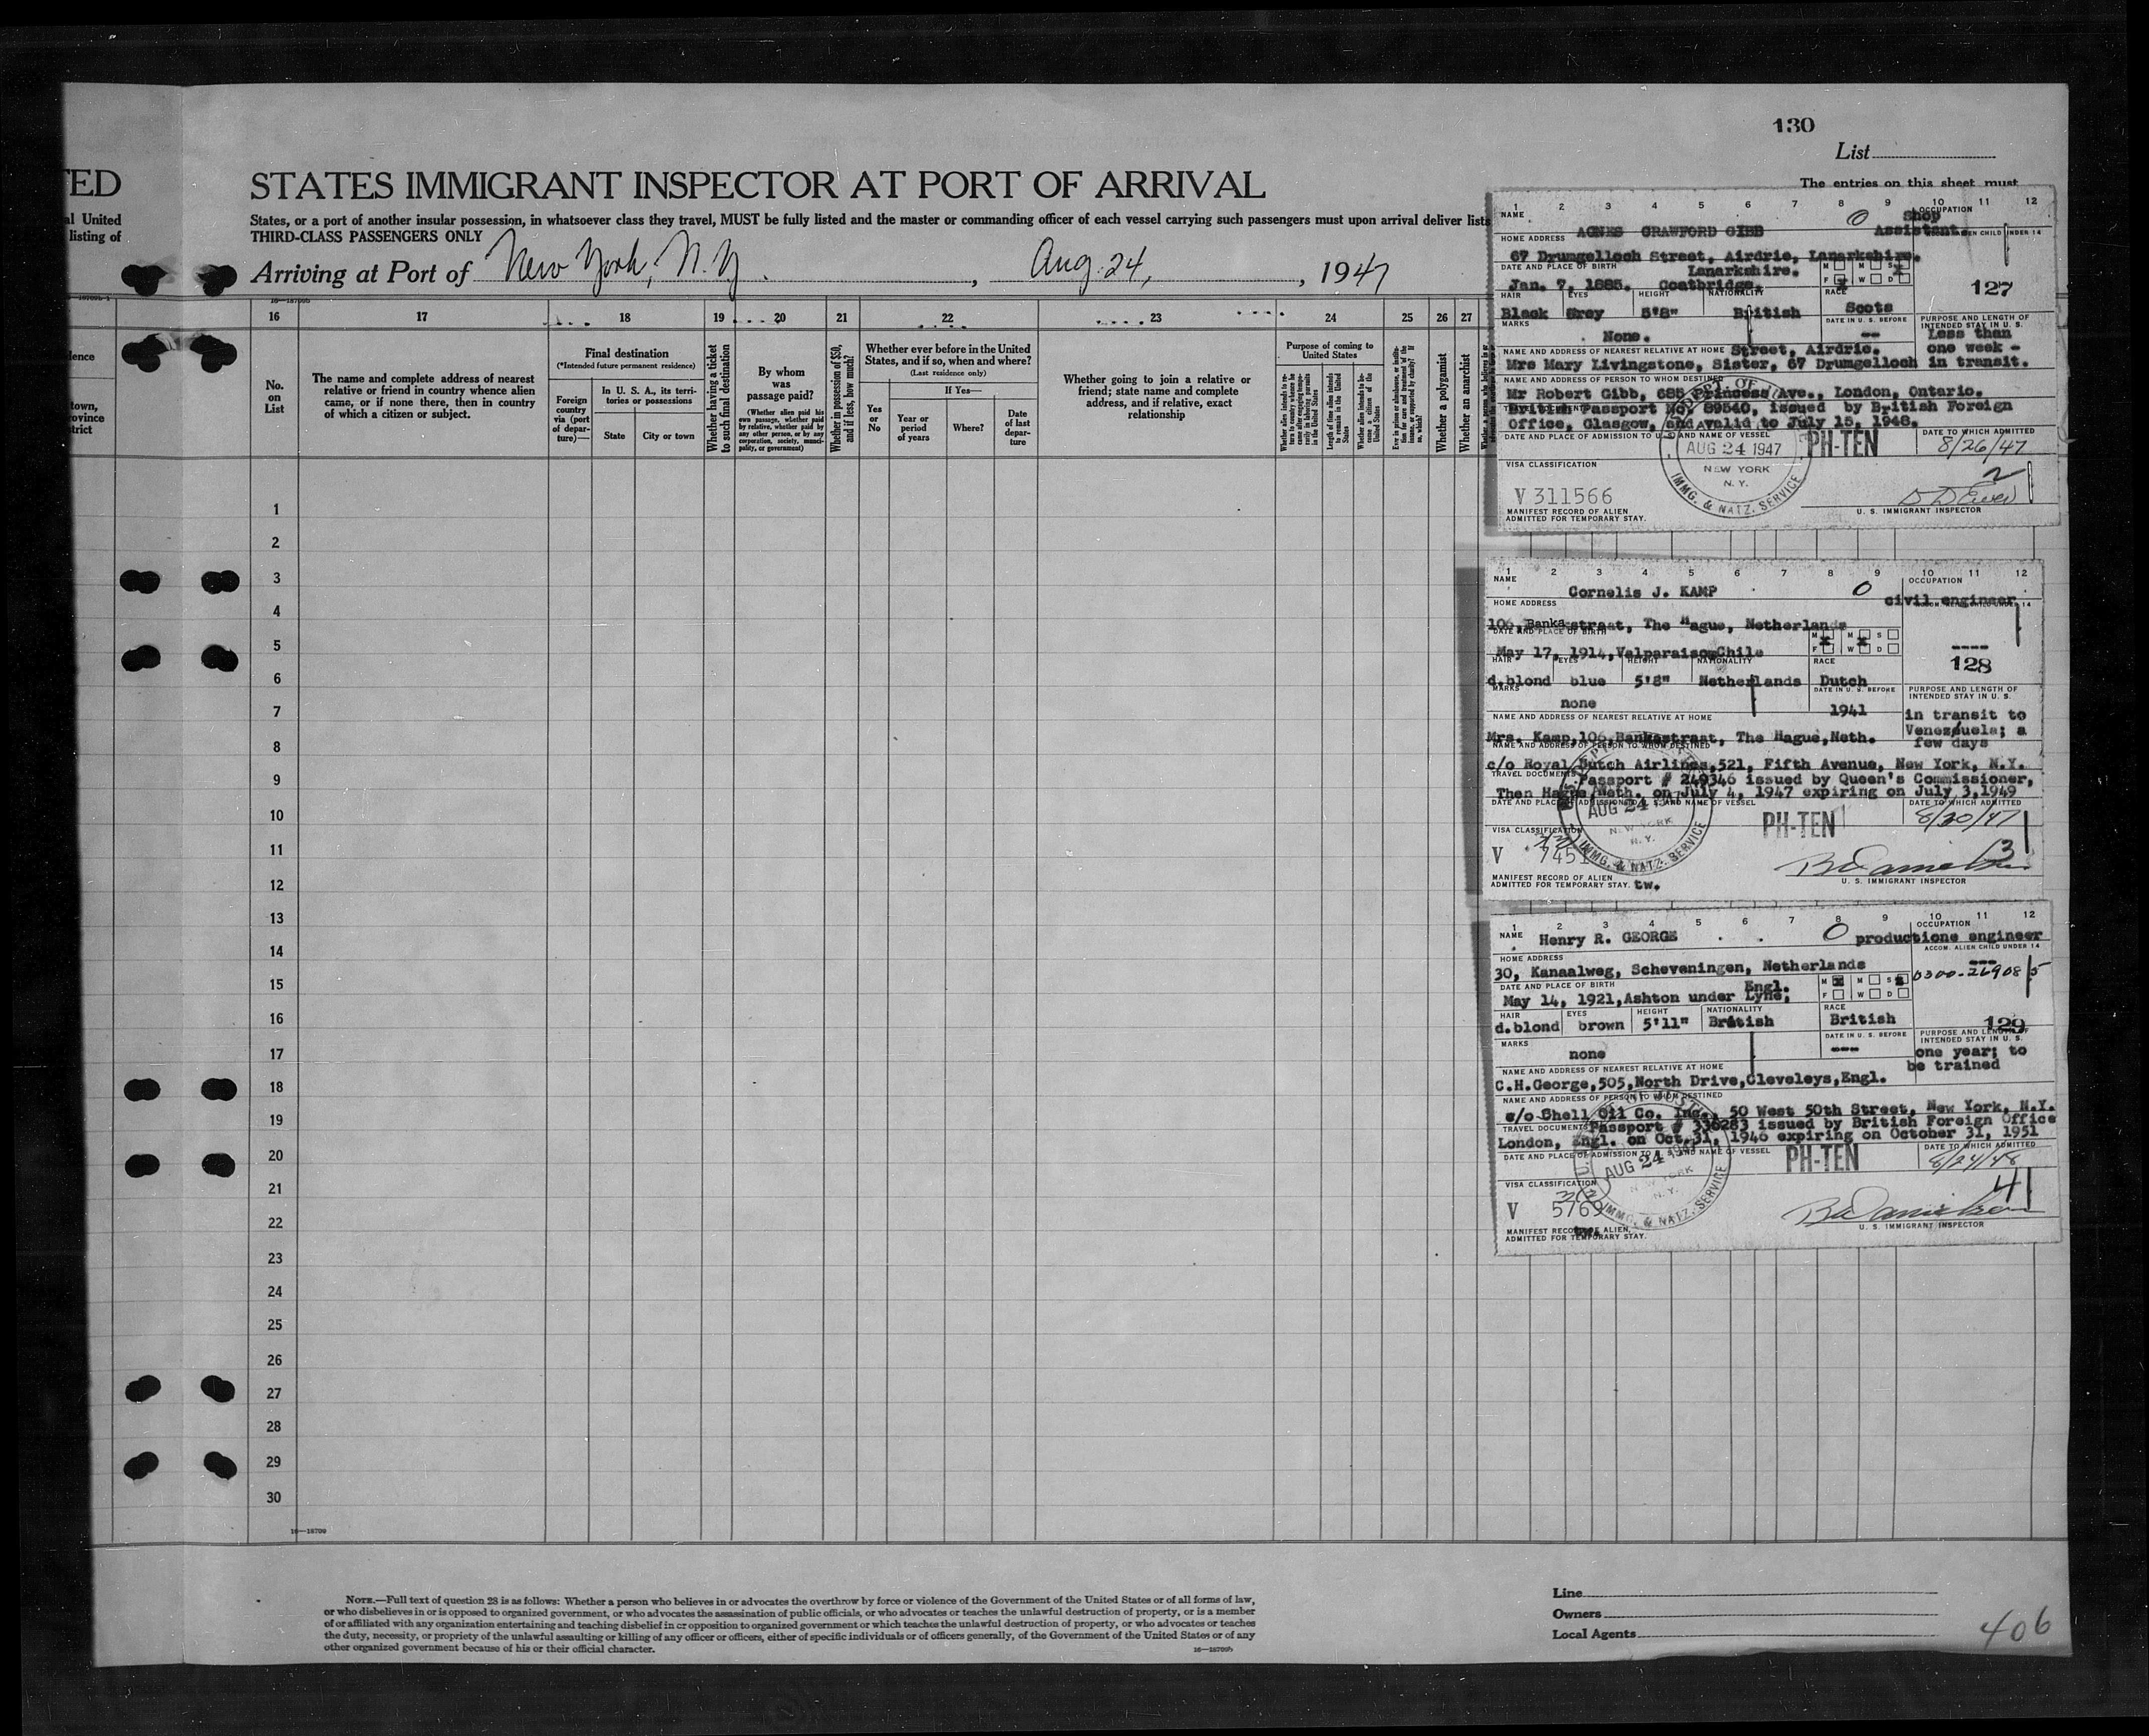 130
List
The entries on this sheet must
TED
STATES IMMIGRANT INSPECTOR AT PORT OF ARRIVAL
al United
listing of
States, or a port of another insular possession, in whatsoever class they travel, MUST be fully listed and the master or commanding officer of each vessel carrying such passengers must upon arrival deliver lists
THIRD-CLASS PASSENGERS ONLY
Arriving at Port of New York, N.Y. , Aug. 24, , 1947
16 17 18 19 20 21 22 23 24 25 26 27
dence
town,
ovince
strict
No. on List
The name and complete address of nearest relative or friend in country whence alien came, or if none there, then in country of which a citizen or subject.
Final destination
(*Intended future permanent residence)
Foreign country via (port of depar-ture)—
In U. S. A., its terri-tories or possessions
State
City or town
Whether having a ticket to such final destination
By whom was passage paid?
(Whether alien paid his own passage, whether paid by relative, whether paid by any other person, or by any corporation, society, munici-pality, or government)
Whether in possession of $50, and if less, how much?
Whether ever before in the United States, and if so, when and where?
(Last residence only)
Yes or No
If Yes—
Year or period of years
Where?
Date of last depar-ture
Whether going to join a relative or friend; state name and complete address, and if relative, exact relationship
Purpose of coming to United States
Length of time alien intends to remain in the United States
Whether alien intends to be-come a citizen of the United States
Whether a polygamist
Whether an anarchist
1
2
3
4
5
6
7
8
9
10
11
12
13
14
15
16
17
18
19
20
21
22
23
24
25
26
27
28
29
30
16—18700
1 2 3 4 5 6 7 8 9 10 11 12
NAME
OCCUPATION
AGNES CRAWFORD GIBB
Shop
Assistant.
HOME ADDRESS
67 Drumgelloch Street, Airdrie, Lanarkshire.
DATE AND PLACE OF BIRTH
Lanarkshire.
Jan. 7, 1885. Coatbridge.
127
HAIR EYES HEIGHT NATIONALITY RACE
Black Grey 5'8" British Scots
MARKS
DATE IN U. S. BEFORE
PURPOSE AND LENGTH OF INTENDED STAY IN U. S.
None.
--
Less than
one week -
in transit.
NAME AND ADDRESS OF NEAREST RELATIVE AT HOME
Street, Airdrie.
Mrs Mary Livingstone, Sister, 67 Drumgelloch
NAME AND ADDRESS OF PERSON TO WHOM DESTINED
Mr Robert Gibb, 685 Princess Ave., London, Ontario.
British Passport No. 89540, issued by British Foreign
Office, Glasgow, and valid to July 15, 1948.
DATE AND PLACE OF ADMISSION TO U. S. AND NAME OF VESSEL
DATE TO WHICH ADMITTED
AUG 24 1947
NEW YORK
N. Y.
IMMG. & NATZ. SERVICE
PH-TEN
8/26/47
VISA CLASSIFICATION
2
V 311566
MANIFEST RECORD OF ALIEN
ADMITTED FOR TEMPORARY STAY.
U. S. IMMIGRANT INSPECTOR
1 2 3 4 5 6 7 8 9 10 11 12
NAME
OCCUPATION
Cornelis J. KAMP
civil engineer
HOME ADDRESS
106, Bankastraat, The Hague, Netherlands
DATE AND PLACE OF BIRTH
May 17, 1914, Valparaiso, Chile
----
128
HAIR EYES HEIGHT NATIONALITY RACE
d.blond blue 5'8" Netherlands Dutch
MARKS
DATE IN U. S. BEFORE
PURPOSE AND LENGTH OF INTENDED STAY IN U. S.
none
1941
in transit to
Venezuela; a
few days
NAME AND ADDRESS OF NEAREST RELATIVE AT HOME
Mrs. Kamp,106,Bankastraat, The Hague,Neth.
NAME AND ADDRESS OF PERSON TO WHOM DESTINED
c/o Royal Dutch Airlines,521, Fifth Avenue, New York, N.Y.
TRAVEL DOCUMENTS
Passport # 249346 issued by Queen's Commissioner,
Then Hague,Neth. on July 4, 1947 expiring on July 3,1949
DATE TO WHICH ADMITTED
AUG 24
NEW YORK
N. Y.
IMMG. & NATZ. SERVICE
PH-TEN
8/30/47
VISA CLASSIFICATION
3
V 7451
MANIFEST RECORD OF ALIEN
ADMITTED FOR TEMPORARY STAY. tw.
U. S. IMMIGRANT INSPECTOR
1 2 3 4 5 6 7 8 9 10 11 12
NAME
OCCUPATION
Henry R. GEORGE
productions engineer
ACCOM. ALIEN CHILD UNDER 14
HOME ADDRESS
30, Kanaalweg, Scheveningen, Netherlands
---
0300-26908/5
DATE AND PLACE OF BIRTH
Engl.
May 14, 1921,Ashton under Lyne,
HAIR EYES HEIGHT NATIONALITY RACE
d.blond brown 5'11" British British
129
MARKS
DATE IN U. S. BEFORE
PURPOSE AND LENGTH OF INTENDED STAY IN U. S.
none
---
one year; to
be trained
NAME AND ADDRESS OF NEAREST RELATIVE AT HOME
C.H.George,505,North Drive,Cleveleys,Engl.
NAME AND ADDRESS OF PERSON TO WHOM DESTINED
c/o Shell Oil Co. Inc., 50 West 50th Street, New York, N.Y.
TRAVEL DOCUMENTS
Passport # 336283 issued by British Foreign Office
London, Engl. on Oct.31, 1946 expiring on October 31, 1951
DATE AND PLACE OF ADMISSION TO U. S. AND NAME OF VESSEL
DATE TO WHICH ADMITTED
AUG 24
N. Y.
IMMG. & NATZ. SERVICE
PH-TEN
8/24/48
VISA CLASSIFICATION
4
V 5769
MANIFEST RECORD OF ALIEN
ADMITTED FOR TEMPORARY STAY.
U. S. IMMIGRANT INSPECTOR
NOTE.—Full text of question 28 is as follows: Whether a person who believes in or advocates the overthrow by force or violence of the Government of the United States or of all forms of law,
or who disbelieves in or is opposed to organized government, or who advocates the assassination of public officials, or who advocates or teaches the unlawful destruction of property, or is a member
of or affiliated with any organization entertaining and teaching disbelief in or opposition to organized government or which teaches the unlawful destruction of property, or who advocates or teaches
the duty, necessity, or propriety of the unlawful assaulting or killing of any officer or officers, either of specific individuals or of officers generally, of the Government of the United States or of any
other organized government because of his or their official character.
Line
Owners
Local Agents
406